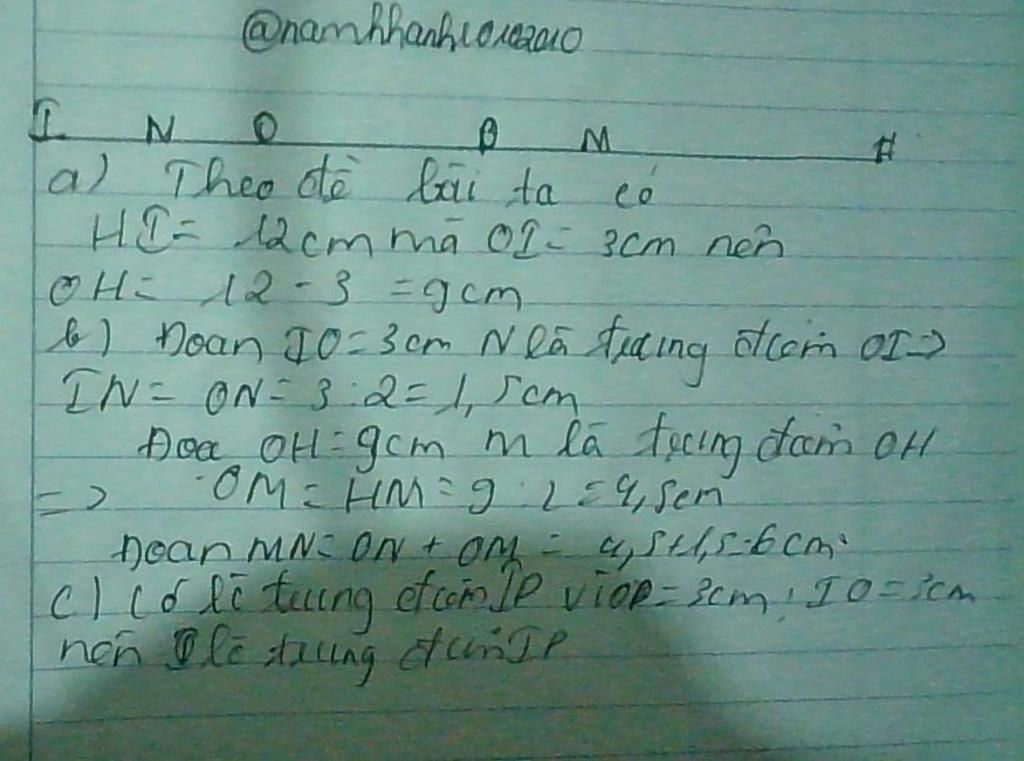 @namhhanh10102010
I N O P M H
a) Theo đề bài ta có
HI = 12cm mà OI = 3cm nên
OH = 12 - 3 = 9cm
b) Đoan IO = 3cm N là trung điểm OI =>
IN = ON = 3 : 2 = 1,5cm
Đoa OH = 9cm M là trung điểm OH
=> OM = HM = 9 : 2 = 4,5cm
Đoan MN = ON + OM = 4,5+1,5=6cm.
c) Có là trung điểm IP vì OP = 3cm; IO = 3cm
nên là trung điểm IP